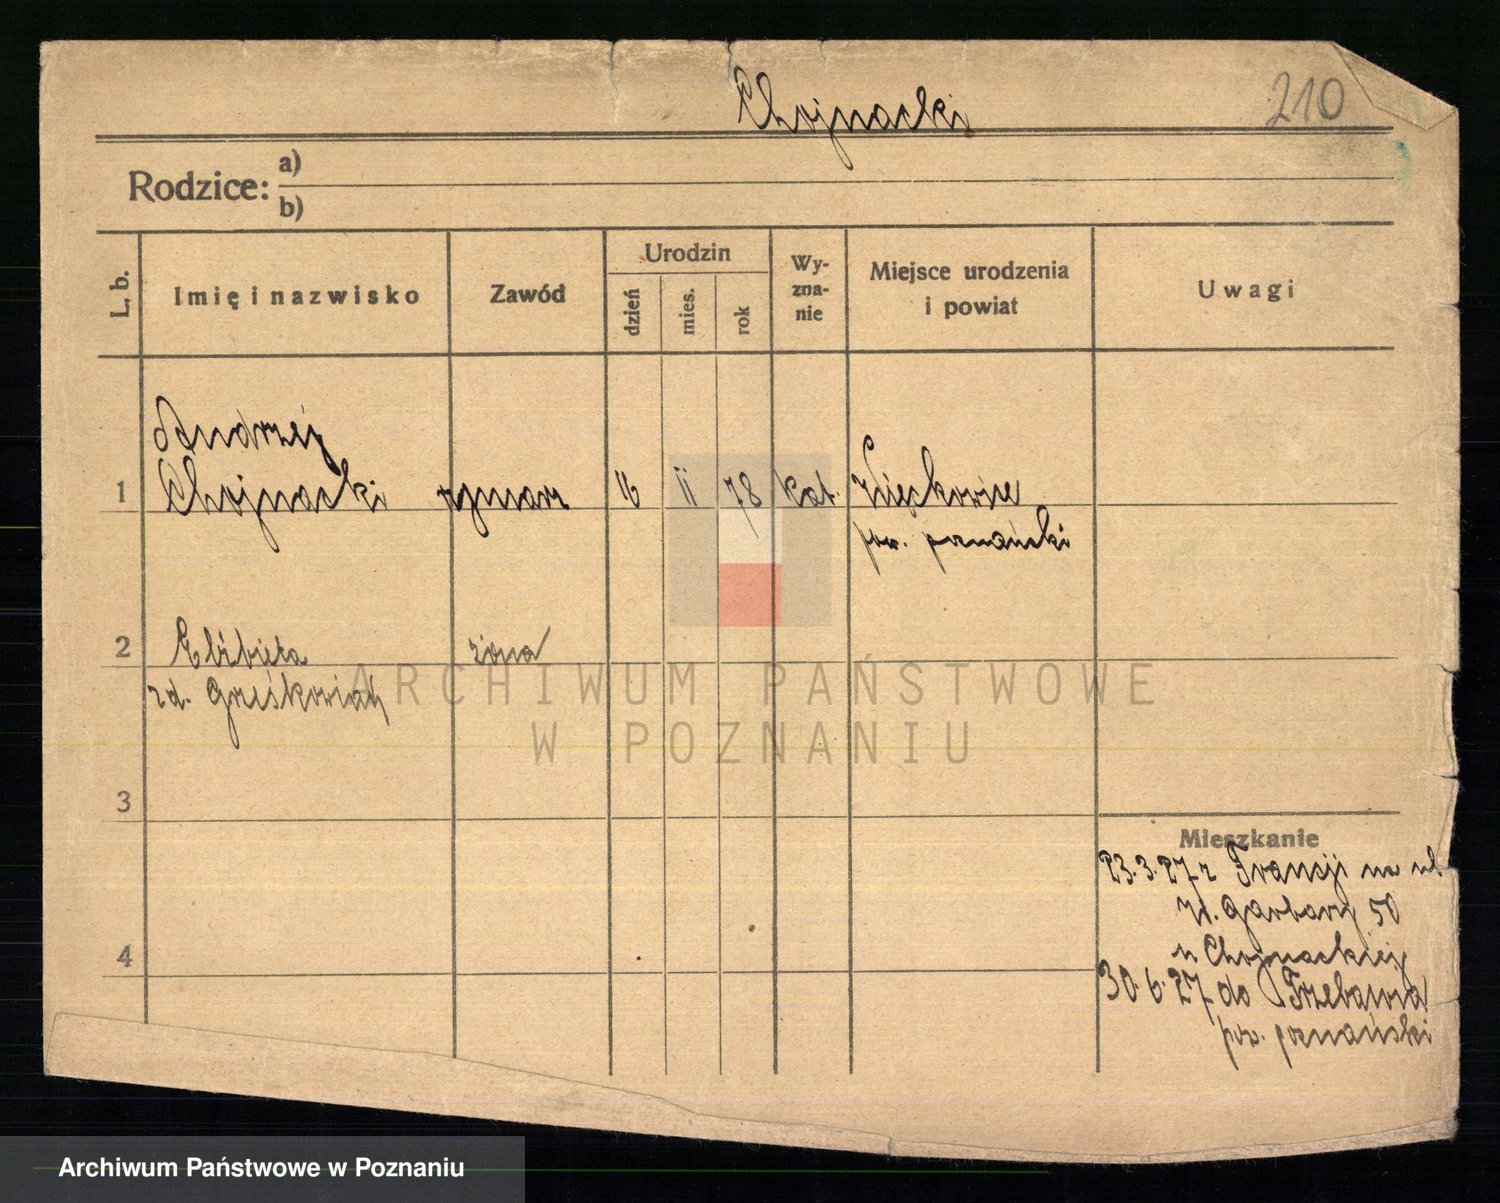 Chojnacki
210
Rodzice: a)
b)
L. b.
Imię i nazwisko
Zawód
Urodzin
dzień
mies.
rok
Wy-
zna-
nie
Miejsce urodzenia
i powiat
Uwagi
Andrzej
1 Chojnacki rymarz 16 11 78 kat. Więckowice
pow. poznański
2 Elżbieta żona
zd. Grześkowiak
3
Mieszkanie
23.3.27 z Francji na ul.
W. Garbary 50
u Chojnackiej
4
30.6.27 do Trzebawia
pow. poznański
ARCHIWUM PAŃSTWOWE
W POZNANIU
Archiwum Państwowe w Poznaniu